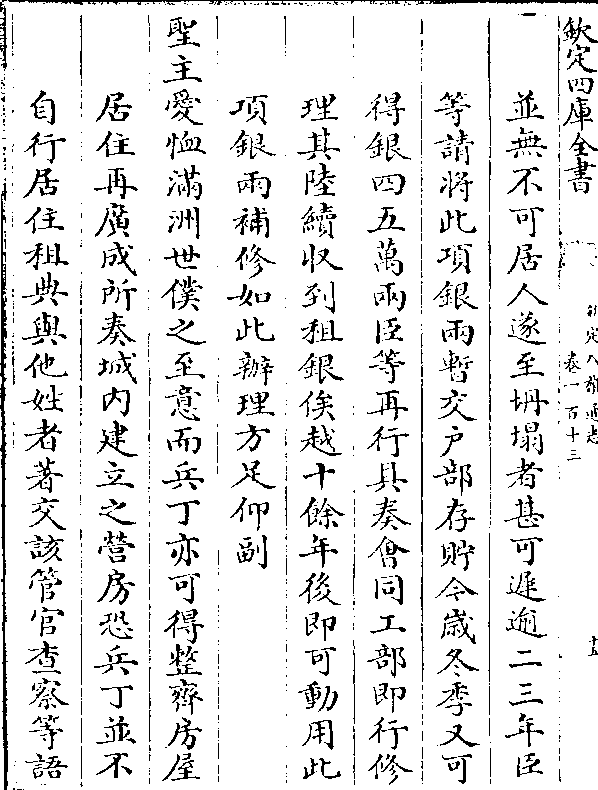 欽定四庫全書
欽定八旗通志
卷一百十三
十五
並無不可居人遂至坍塌者甚可遲逾二三年臣
等請將此項銀兩暫交戶部存貯令歲冬季又可
得銀四五萬兩臣等再行具奏會同工部即行修
理其陸續收到租銀俟越十餘年後即可動用此
項銀兩補修如此辦理方足仰副
聖主愛恤滿洲世僕之至意而兵丁亦可得整齊房屋
居住再廣成所奏城内建立之營房恐兵丁並不
自行居住租典與他姓者著交該管官查察等語